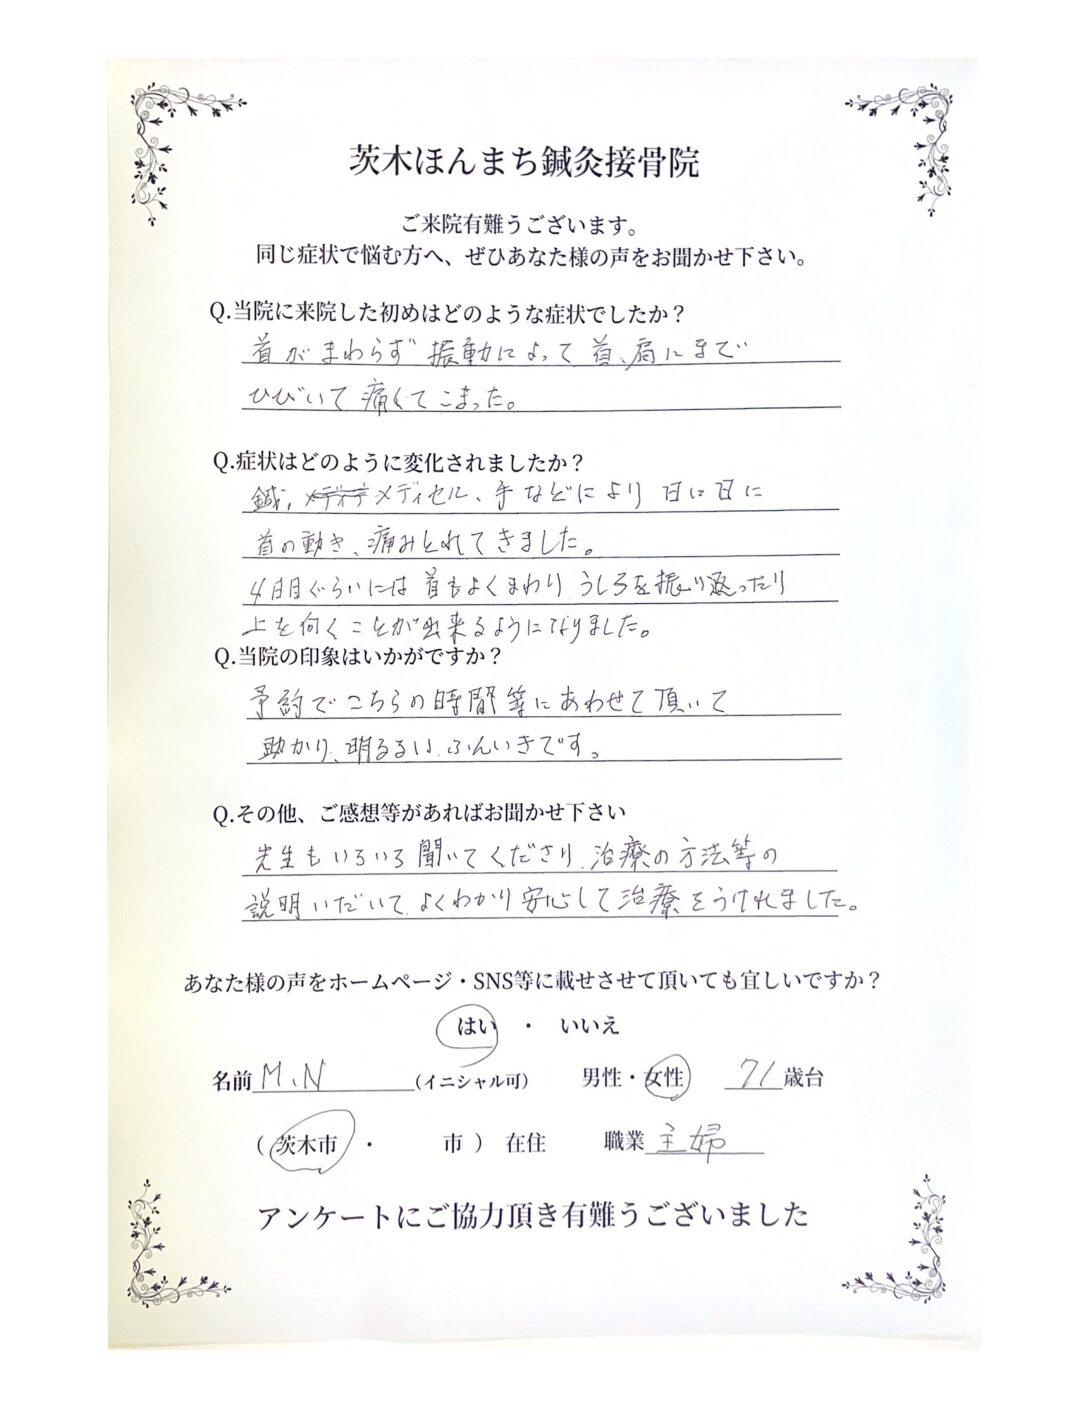 茨木ほんまち鍼灸接骨院
ご来院有難うございます。
同じ症状で悩む方へ、ぜひあなた様の声をお聞かせ下さい。
Q.当院に来院した初めはどのような症状でしたか？
首がまわらず振動によって首、肩にまで
ひびいて痛くてこまった。
Q.症状はどのように変化されましたか？
鍼、メディセル、手などにより日に日に
首の動き、痛みとれてきました。
4日目ぐらいには首もよくまわりうしろを振り返ったり
上を向くことが出来るようになりました。
Q.当院の印象はいかがですか？
予約でこちらの時間等にあわせて頂いて
助かり、明るるい、ふんいきです。
Q.その他、ご感想等があればお聞かせ下さい
先生もいろいろ聞いてくださり、治療の方法等の
説明いだいて、よくわかり安心して治療をうけれました。
あなた様の声をホームページ・SNS等に載せさせて頂いても宜しいですか？
はい ・ いいえ
名前 M、N （イニシャル可） 男性・女性 71歳台
（ 茨木市 ・ 市 ） 在住 職業 主婦
アンケートにご協力頂き有難うございました